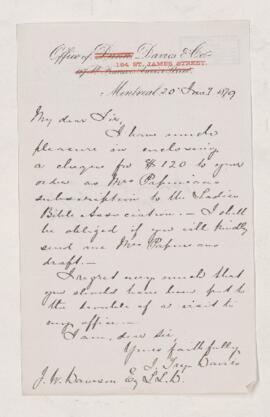 Office of Dunn Davies & Co.
164 ST. JAMES STREET.
Montreal, 20 Jan.y 1879
My dear Sir,
I have much
pleasure in enclosing
a cheque for $120 to your
order as Mrs
subscription to the Ladies
Bible Association. — I shall
be obliged if you will kindly
send me Mrs
draft. —
I regret very much that
you should have been put to
the trouble of a visit to
my office. —
I am, dear Sir,
Yours faithfully,
Davies
J. W. Dawson Esq LL.D.